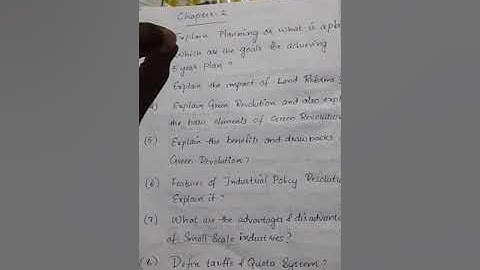 Chapter-2
Explain Planning or what is a pla
Which are the goals for achieving
5 year Plan?
Explain the impact of Land Reforms
Explain Green Revolution and also expl
the basic elements of Green Revolution
(5) Explain the benefits and drawbacks
Green Revolution?
(6) Features of Industrial Policy Resolutio
Explain it?
(7) What are the advantages & disadvanta
of Small Scale industries?
(8) Define tariffs & Quota System?